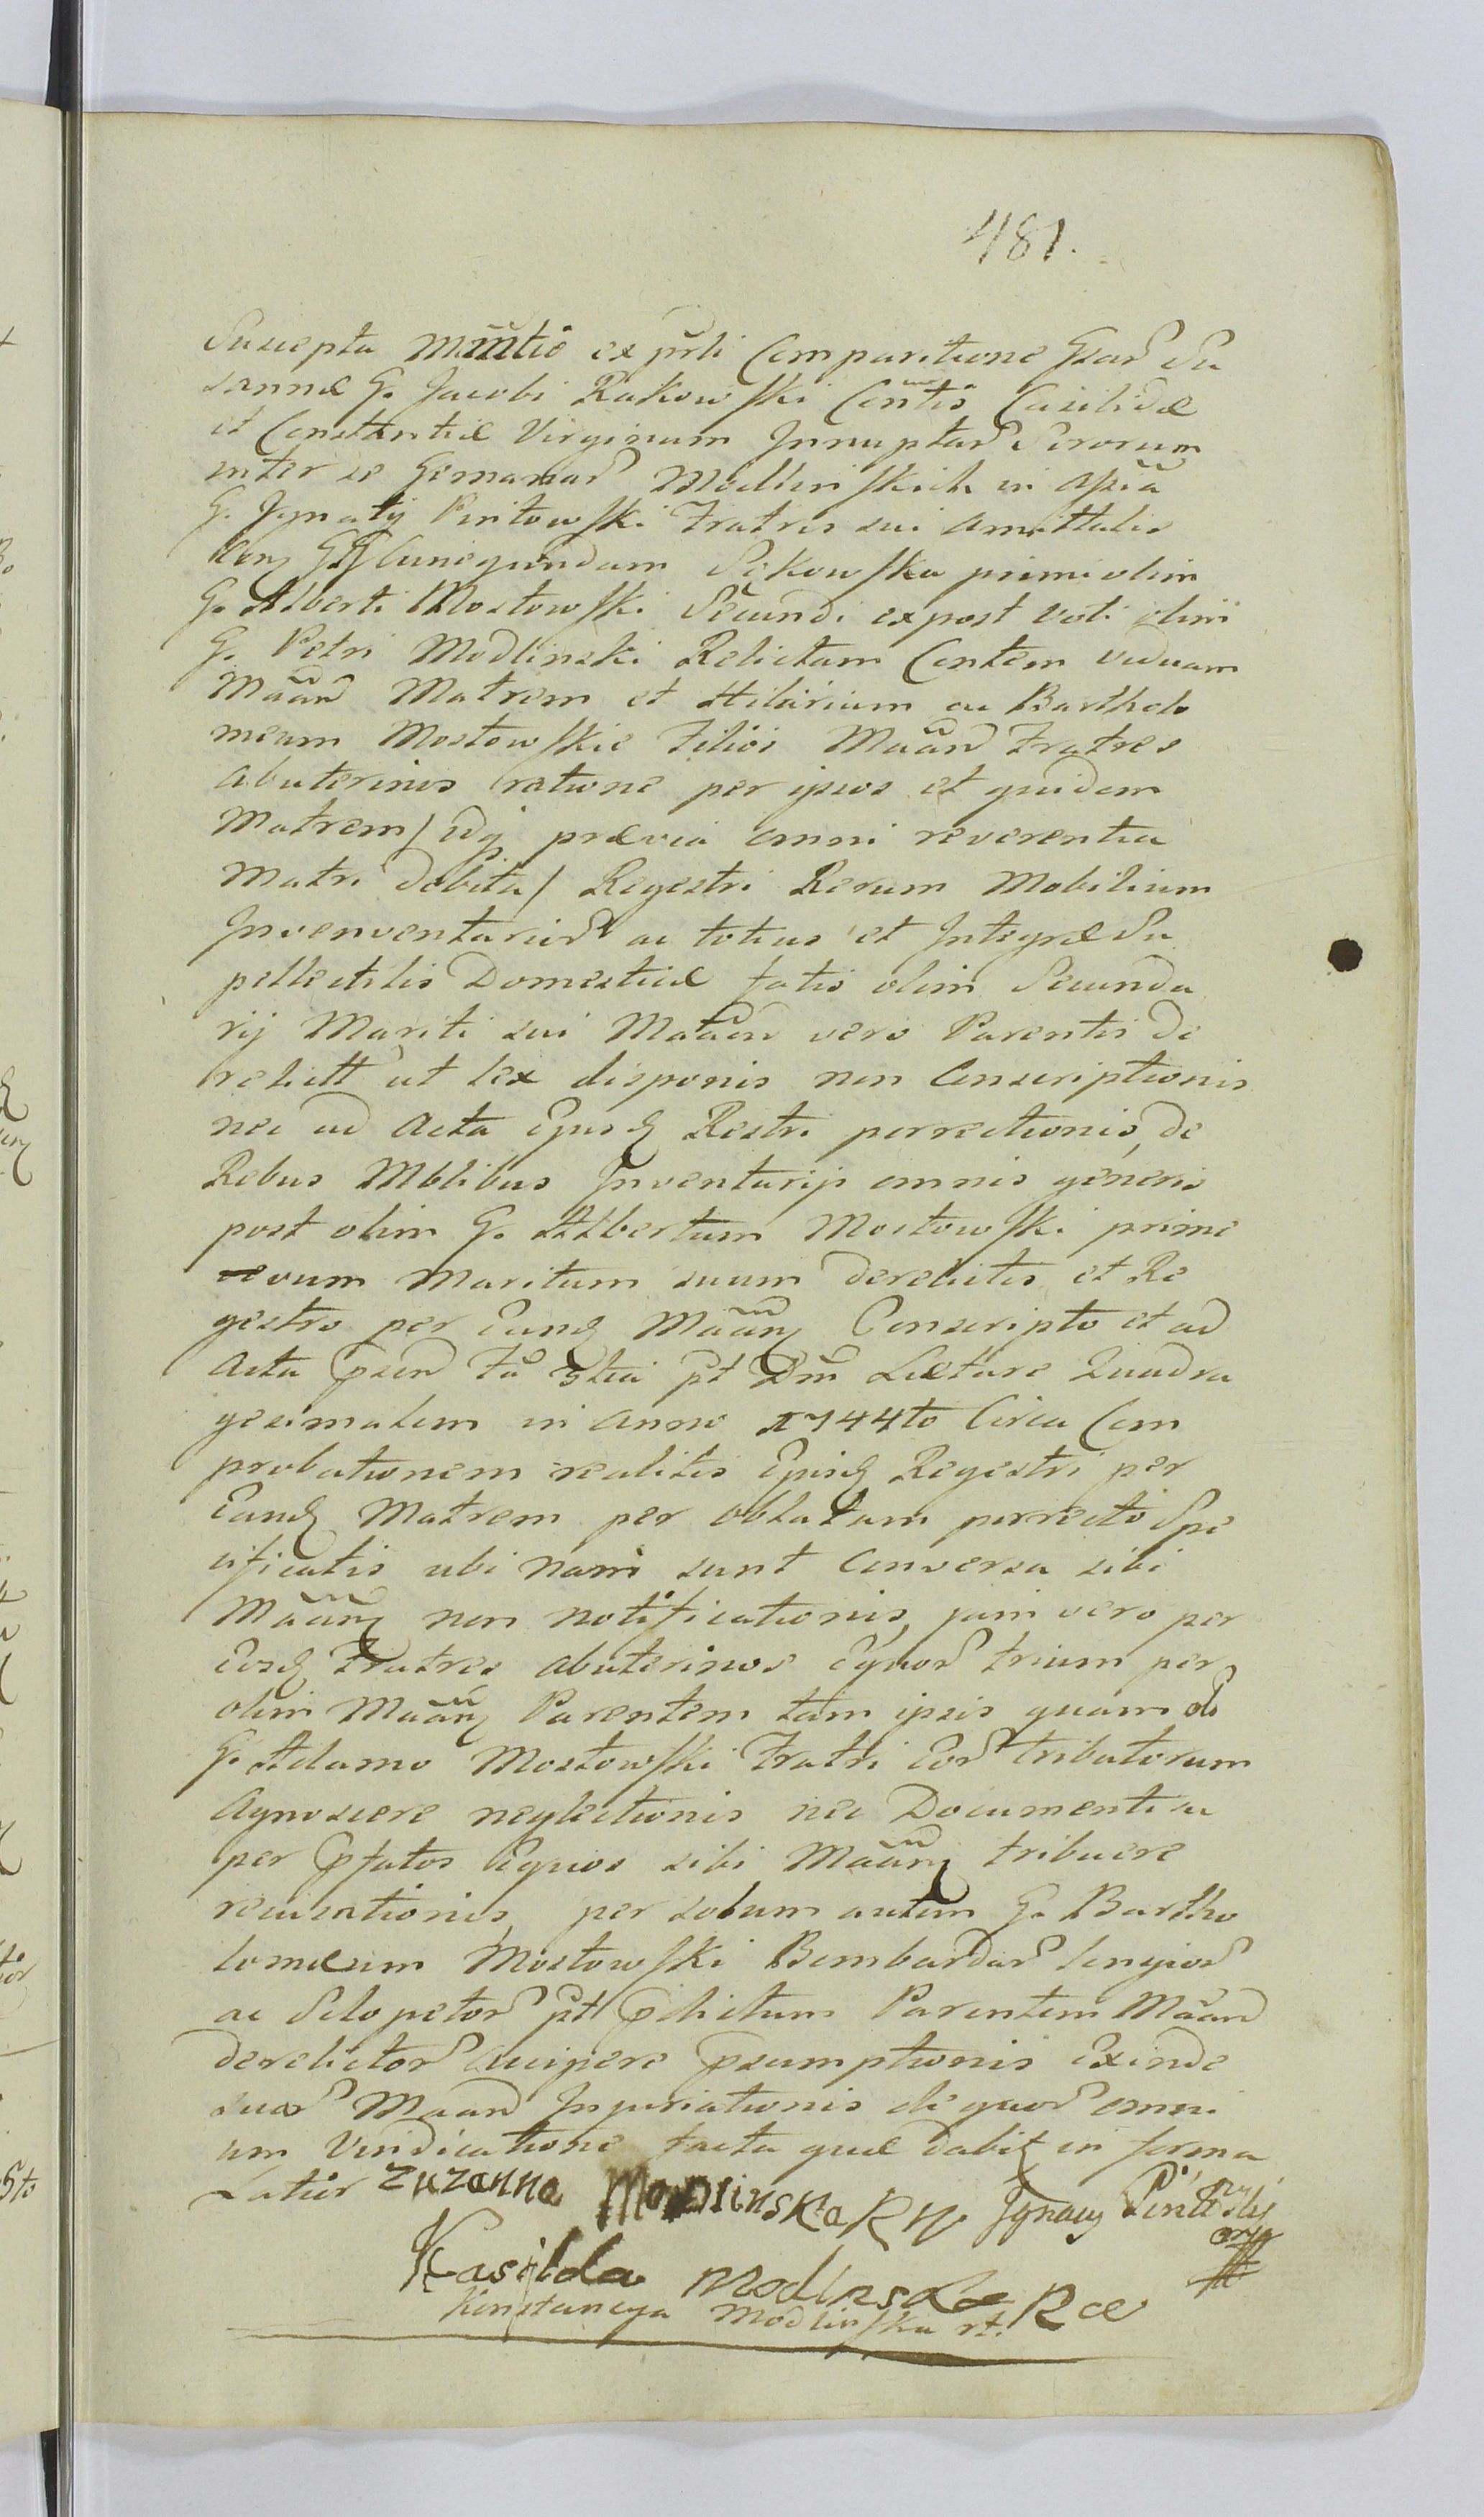 481.
Suscepta Mñtio ex prli Comparitione Gsar Su
sannæ G. Jacobi Rakowski Cõntis Casildæ
et Constantiæ Virginum Innuptar Sororum
inter se Germanar Modlinskich in Assia
G. Ignatij Pintowski Fratris sui Amittalis
Cunegundam Sikowska primi olim
G. Alberti Mostowski Secundi expost voti olim
G. Petri Modlinski Relictam Contem viduam
Maar Matrem et Hilarium ac Bartholo
meum Mostowskie Filios Maar Fratres
abuterinos ratione per ipsos et quidem
Matrem / idq prævia omni reverentia
Matri debita / Regestri Rerum Mobilium
Invenventarior ac totius et Integræ Su
pellectilis Domesticæ fatis olim Secunda
rij Mariti sui Maaar vero Parentis de
relictt ut lex disponis non Conscriptionis
nec ad Acta Ejusq Restri porrectionis, de
Rebus Mblibus Inventarijs omnis generis
post olim G. Albertum Mostowski prime
vum Maritum suum derelictis et Re
gestro per Eanq Maarz Conscripto et ad
Acta psen Fa 3tia pt Dm Lætare Quadra
gesimalem in Anno 1744to Circa Com
probationem realitis Ejusq Regestri per
Eanq Matrem per oblatam porrecto Spe
cificatis ubi nam sunt Conversa sibi
Maarz non notificationis, jam vero per
Eosq Fratres abuterinos Equor trium per
olim Maarz Parentem tam ipsis quam
G. Adamo Mostowski Fratri Eor tributorum
Agnoscere neglectionis nec Documenta
per pfatos Equos sibi Maarz tribuere
recusationis, per solum autem G. Bartho
lomæum Mostowski Bombardar longior
ac Sclopetor pt pdictum Parentem Maar
derelictor Accipere psumptionis Exinde
suar Maar Injuriationis de quor omni
um Vindicatione facta quæ dabit in forma
Latior Zuzanna Modlinska Ignacy
Kasylda Modlinska
Konstancya Modlinska